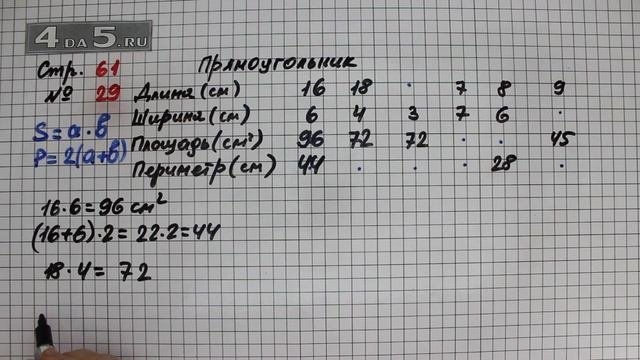 4DA5.RU
Стр. 61
№ 29
S=a·b
P=2(a+b)
Прямоугольник
Длина (см) 16 18 · 7 8 9
Ширина (см) 6 4 3 7 6 ·
Площадь (см²) 96 72 72 · · 45
Периметр (см) 44 · · · 28 ·
16·6=96 см²
(16+6)·2=22·2=44
18·4=72